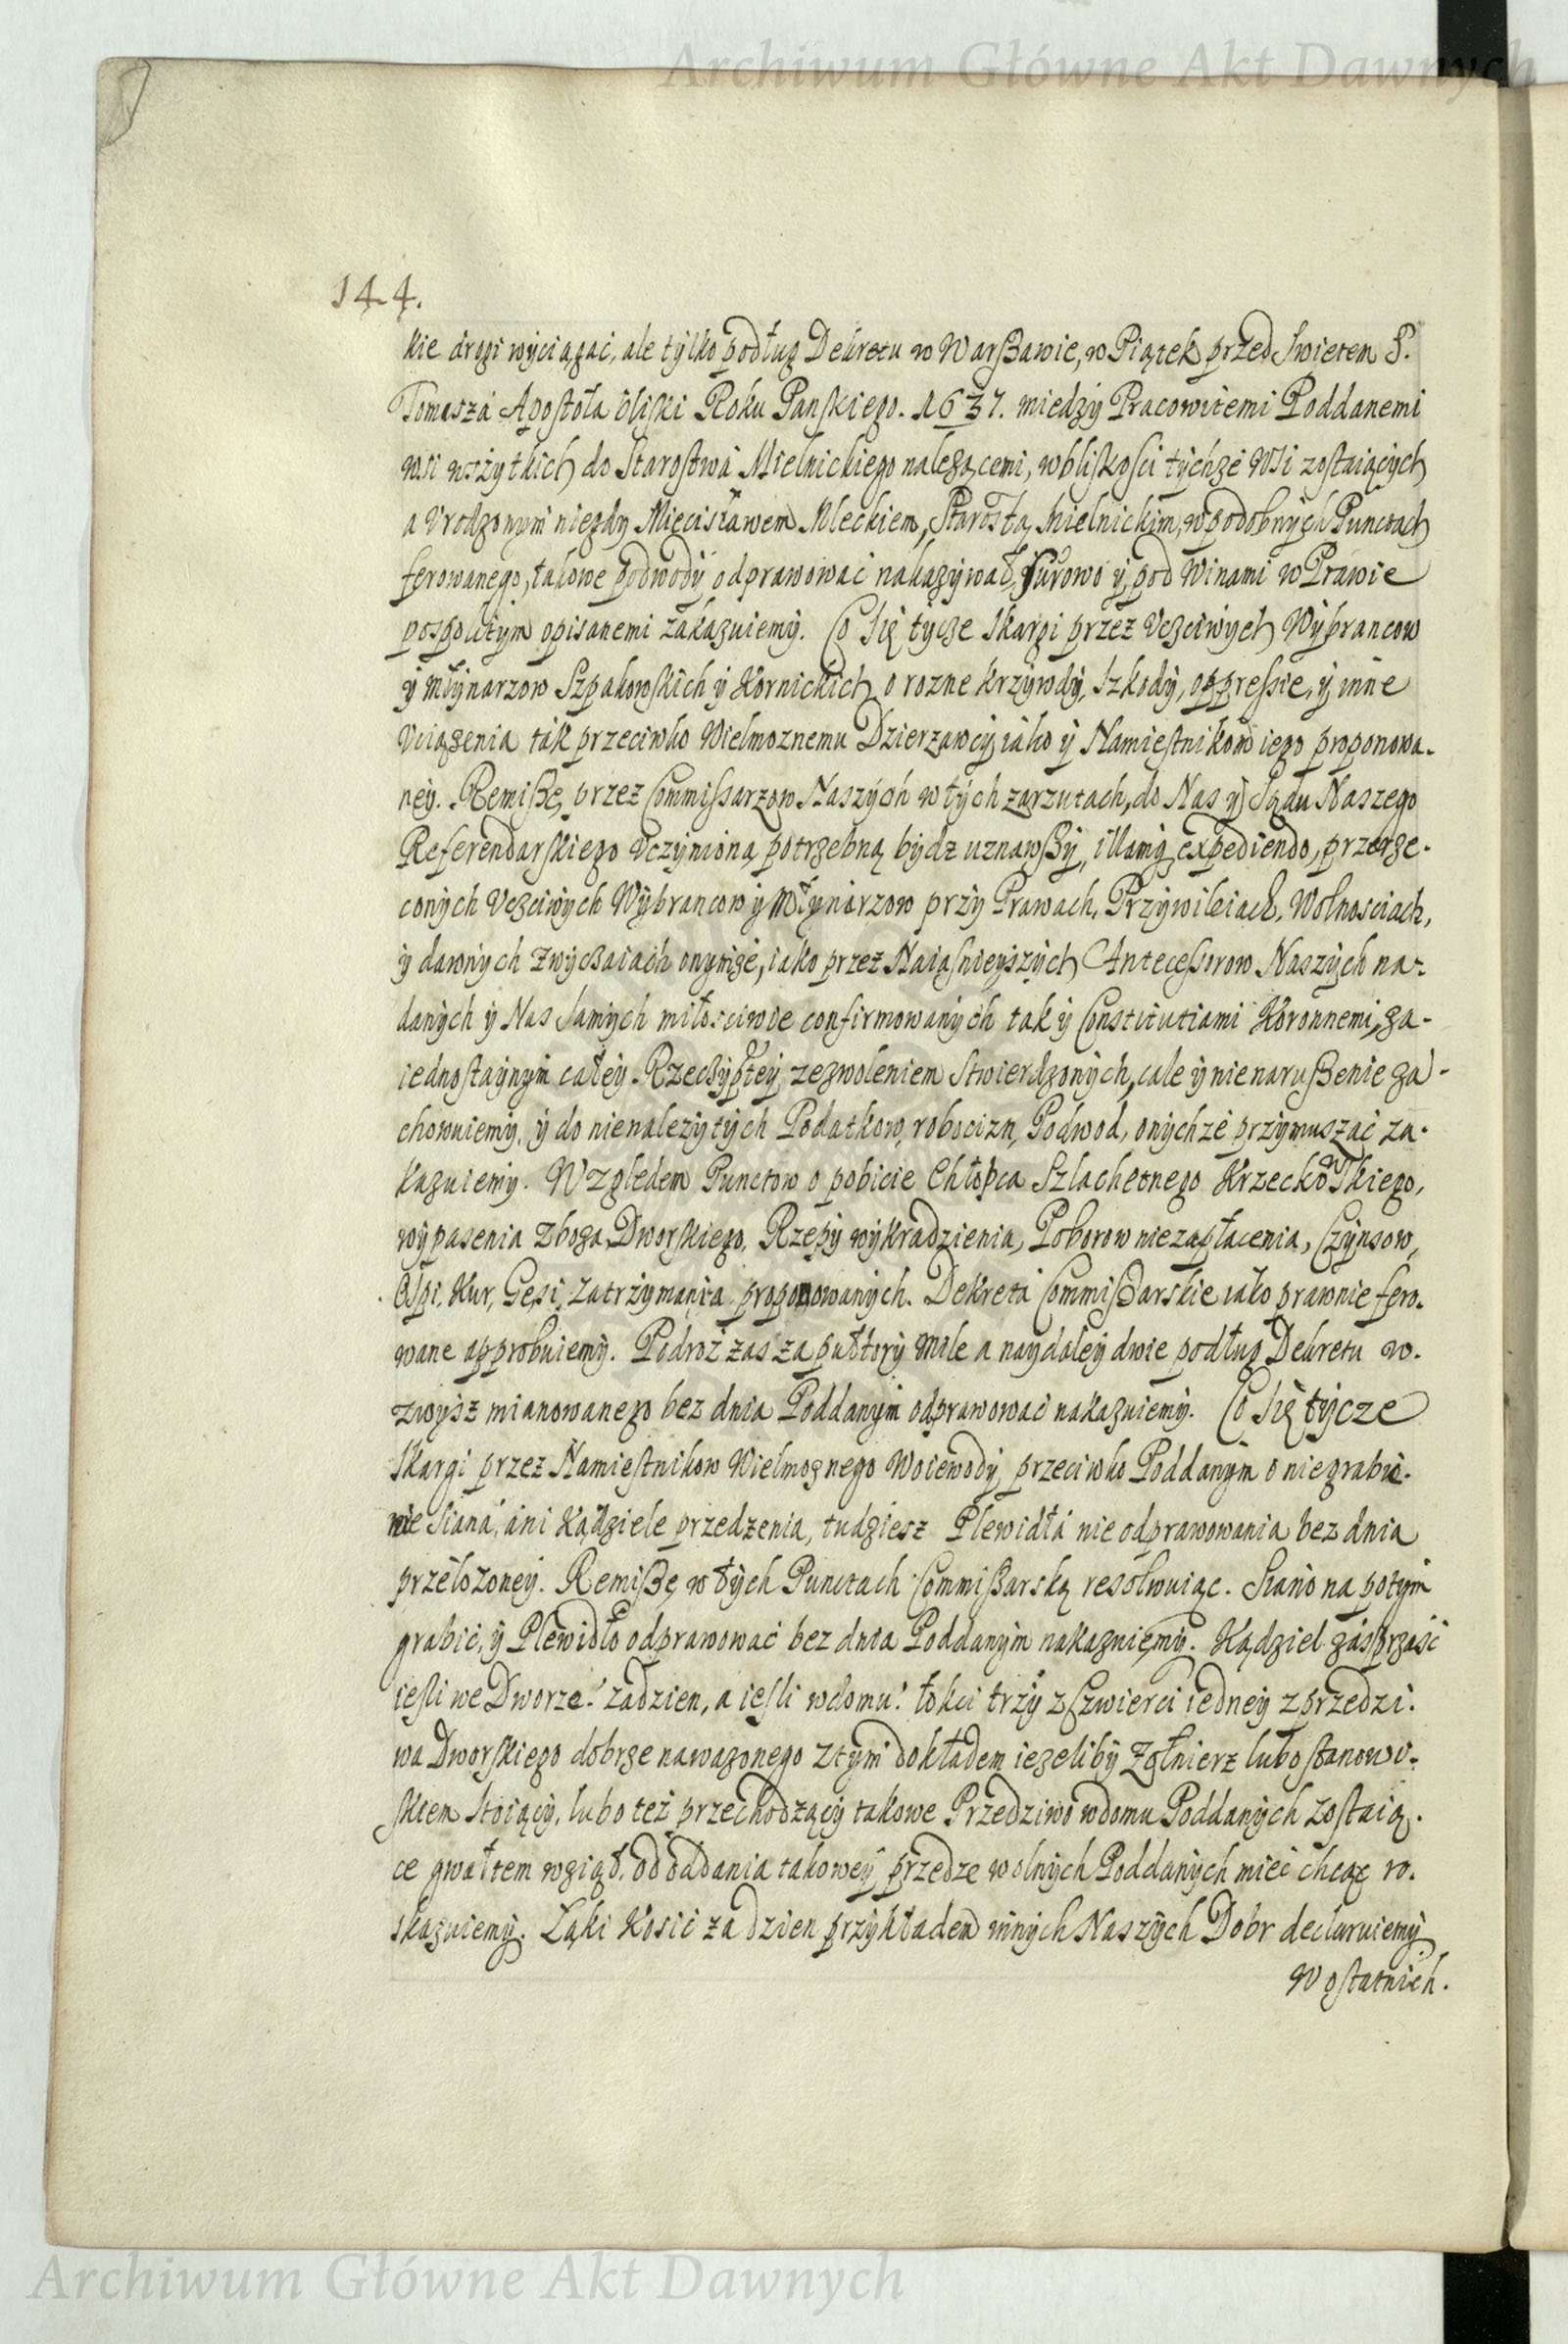 Archiwum Główne Akt Dawnych
144.
kie drogi wyciągać, ale tylko podług Dekretu w Warszawie, w Piątek przed Swietem S.
Tomasza Apostoła bliski Roku Panskiego. 1637. miedzy Pracowitemi Poddanemi
wsi wszytkich do Starostwa Mielnickiego należącemi, wbliskosci tychże Wsi zostaiących
a Vrodzonym niegdy Mięcisławem Mleckiem, Starostą Mielnickim, w podobnych Punctach
ferowanego, takowe podwody odprawować nakazywał, surowo y pod Winami w Prawie
pospolitym opisanemi zakazuiemy. Co się tycze skargi przez Vczciwych Wybrancow
y Młynarzow Szpakowskich y Kornickich o rozne krzywdy, szkody, oppressie, y inne
Vciążenia tak przeciwko Wielmoznemu Dzierzawcy iako y Namiestnikow iego proponowa-
ney. Remissę przez Commissarzow Naszych w tych zarzutach, do Nas y Sądu Naszego
Referendarskiego Vczynioną potrzebną bydz uznawszy, illamq expediendo, przerze-
conych Vczciwych Wybrancow y Młynarzow przy Prawach, Przywileiach, Wolnosciach,
y dawnych zwyczaiach onymże, iako przez Naiasnieyszych Antecessorow Naszych na-
danych y Nas samych miłosciwie confirmowanych tak y Constitutiami Koronnemi, za-
iednostaynym całey Rzeczyptey zezwoleniem stwierdzonych, cale y nienaruszenie za-
chowuiemy, y do nienalezytych Podatkow, robocizn, Podwod, onychze przymuszać za-
kazuiemy. Względem Punctow o pobicie Chłopca Szlachetnego Krzeckowskiego,
wypasenia zboza Dworskiego, Rzepy wykradzienia, Poborow niezapłacenia, Czynsow,
Ospi, Kur, Gęsi, zatrzymania proponowanych. Dekreta Commissarskie iako prawnie fero-
wane approbuiemy. Podroż zas za pułtory mile a naydaley dwie podług Dekretu w-
zwysz mianowanego bez dnia Poddanym odprawować nakazuiemy. Co się tycze
skargi przez Namiestnikow Wielmoznego Woiewody przeciwko Poddanym o niegrabie-
nie siana, ani Kądziele przedzenia, tudziesz Plewidła nie odprawowania bez dnia
przełozoney. Remissę w tych Punctach Commissarską resolwuiąc. Siano na potym
grabić, y Plewidło odprawować bez dnia Poddanym nakazuiemy. Kądziel zas prząść
iesli we Dworze: zadzien, a iesli wdomu: łokci trzy z czwierci iedney z przedzi-
wa Dworskiego dobrze nawazonego z tym dokładem iezeliby Zołnierz lubo stanowi-
skiem stoiący, lubo też przechodzący takowe Przedziwo wdomu Poddanych zostaią-
ce gwałtem wziął, od oddania takowey przedze wolnych Poddanych mieć chcąc ro-
skazuiemy. Łąki Kosić za dzien przykładem innych Naszych Dobr declaruiemy
W ostatnich.
Archiwum Główne Akt Dawnych